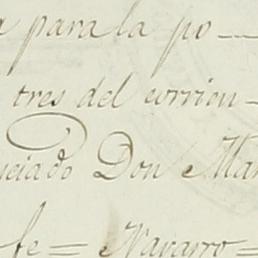 para la po-
tres del corrien-
Don Mar
fe = Navarro =